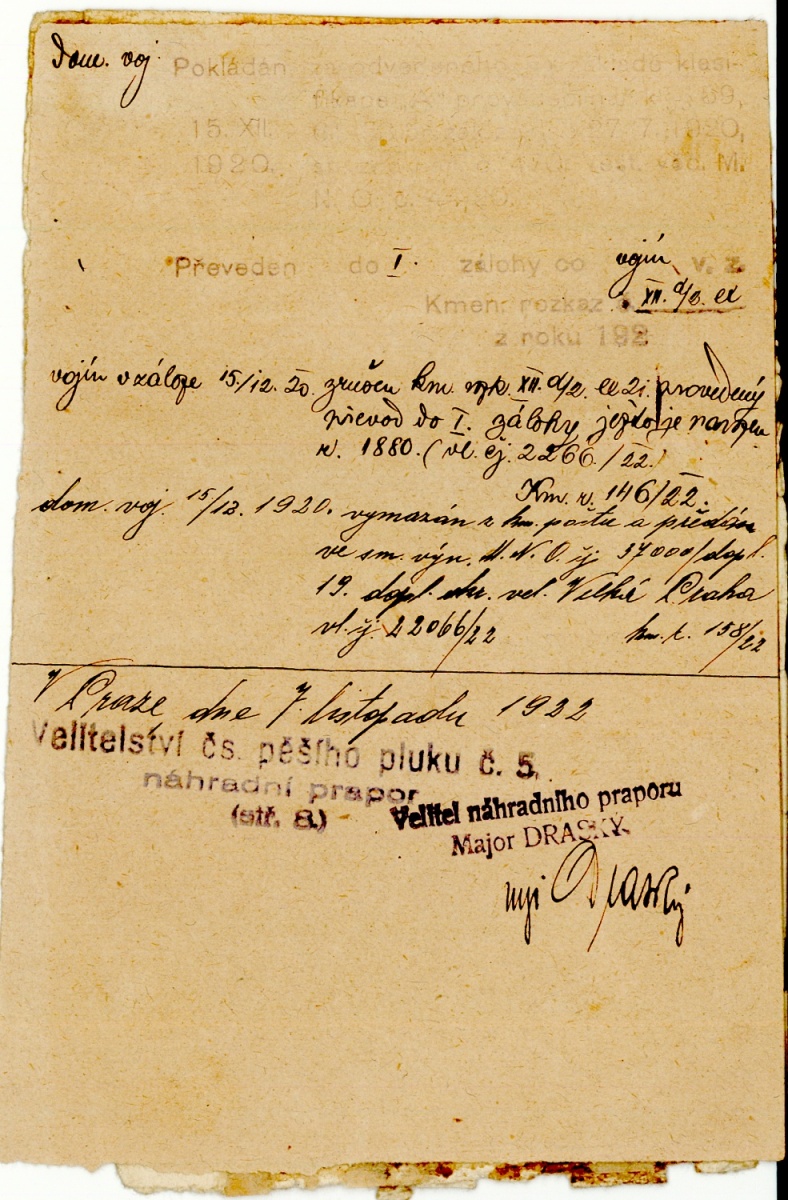 dom. voj.
Pokládán za odvedeného
89,
15. XII. 1920,
1920. M.
Převeden do I. zálohy co vojín v. z.
Kmen. rozkaz XII. d/2. ex
z roku 192
vojín v záloze 15/12. 20. zrušen km. rozk. XII. d/2. ex 21. provedený
převod do I. zálohy ježdo je narozen
r. 1880. (vl. čj. 2266/22)
Km. r. 146/22.
dom. voj. 15/12. 1920. vymazán z km. počtu a předán
ve sm. výn. M. N. O. čj 37000/dopl.
19. dopl. okr. vel. Velká Praha
vl. čj. 22066/22 km. r. 158/22
V Praze dne 7. listopadu 1922
Velitelství čs. pěšího pluku č. 5.
náhradní prapor
(stř. 8.)
Velitel náhradního praporu
Major DRASKÝ.
mjr Draský